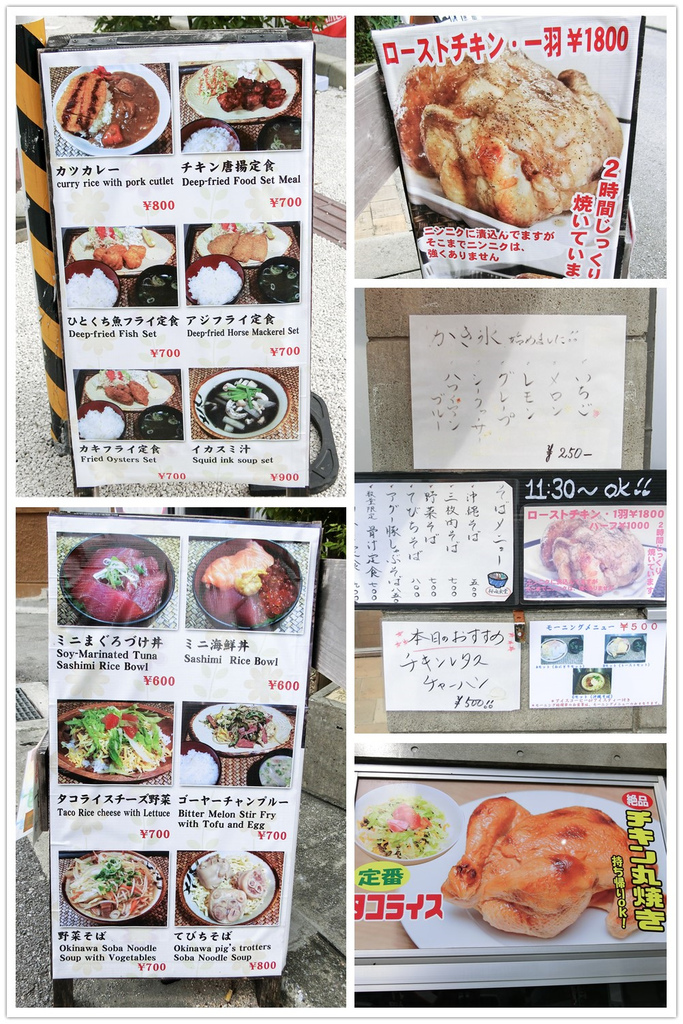 カツカレー
curry rice with pork cutlet
¥800
チキン唐揚定食
Deep-fried Food Set Meal
¥700
ひとくち魚フライ定食
Deep-fried Fish Set
¥700
アジフライ定食
Deep-fried Horse Mackerel Set
¥700
カキフライ定食
Fried Oysters Set
¥700
イカスミ汁
Squid ink soup set
¥900
ローストチキン・一羽¥1800
2時間じっくり
焼いていま
ニンニクに漬込んでますが
そこまでニンニクは、
強くありません
かき氷 始めました!!
いちご
メロン
レモン
グレープ
シークヮーサー
ハワイアン
ブルー
¥250-
そばメニュー
沖縄そば 500
三枚肉そば 700
野菜そば 700
てびちそば 800
アグー豚しゃぶそば 850
数量限定 骨汁定食 700
11:30~ OK!!
ローストチキン・1羽¥1800
ハーフ¥1000
2時間じっくり
焼いています。
本日のおすすめ
チキンレタス
チャーハン
¥500!!
モーニングメニュー ¥500
ミニまぐろづけ丼
Soy-Marinated Tuna
Sashimi Rice Bowl
¥600
ミニ海鮮丼
Sashimi Rice Bowl
¥600
タコライスチーズ野菜
Taco Rice cheese with Lettuce
¥700
ゴーヤーチャンプルー
Bitter Melon Stir Fry
with Tofu and Egg
¥700
野菜そば
Okinawa Soba Noodle
Soup with Vogetables
¥700
てびちそば
Okinawa pig's trotters
Soba Noodle Soup
¥800
絶品
チキン丸焼き
持ち帰りOK!
定番
タコライス